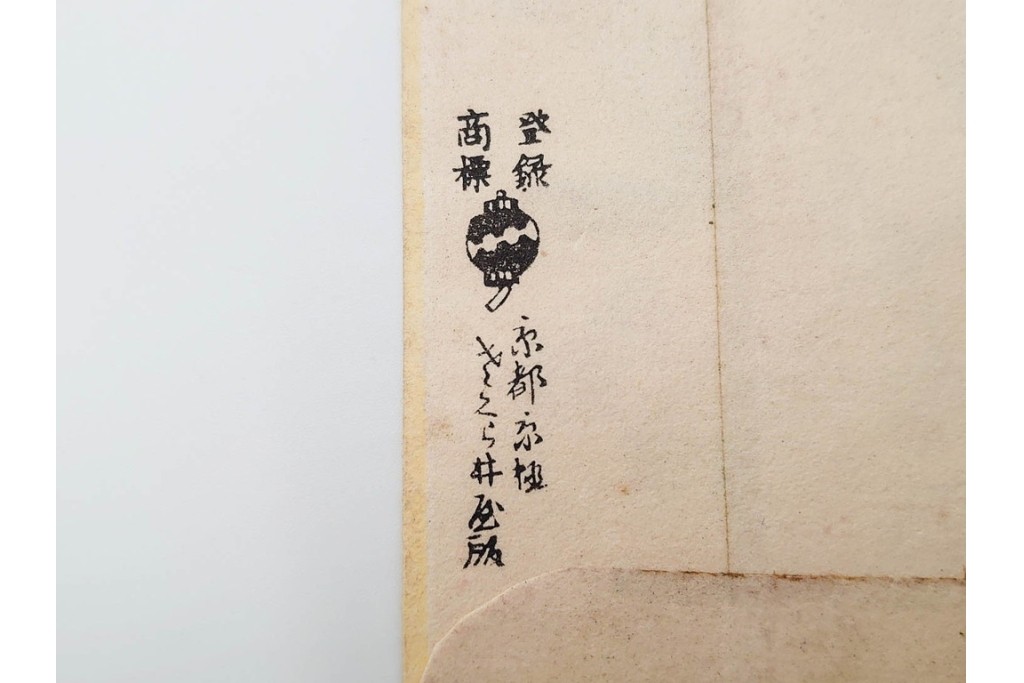 登録
商標
京都京極
さくら井屋版